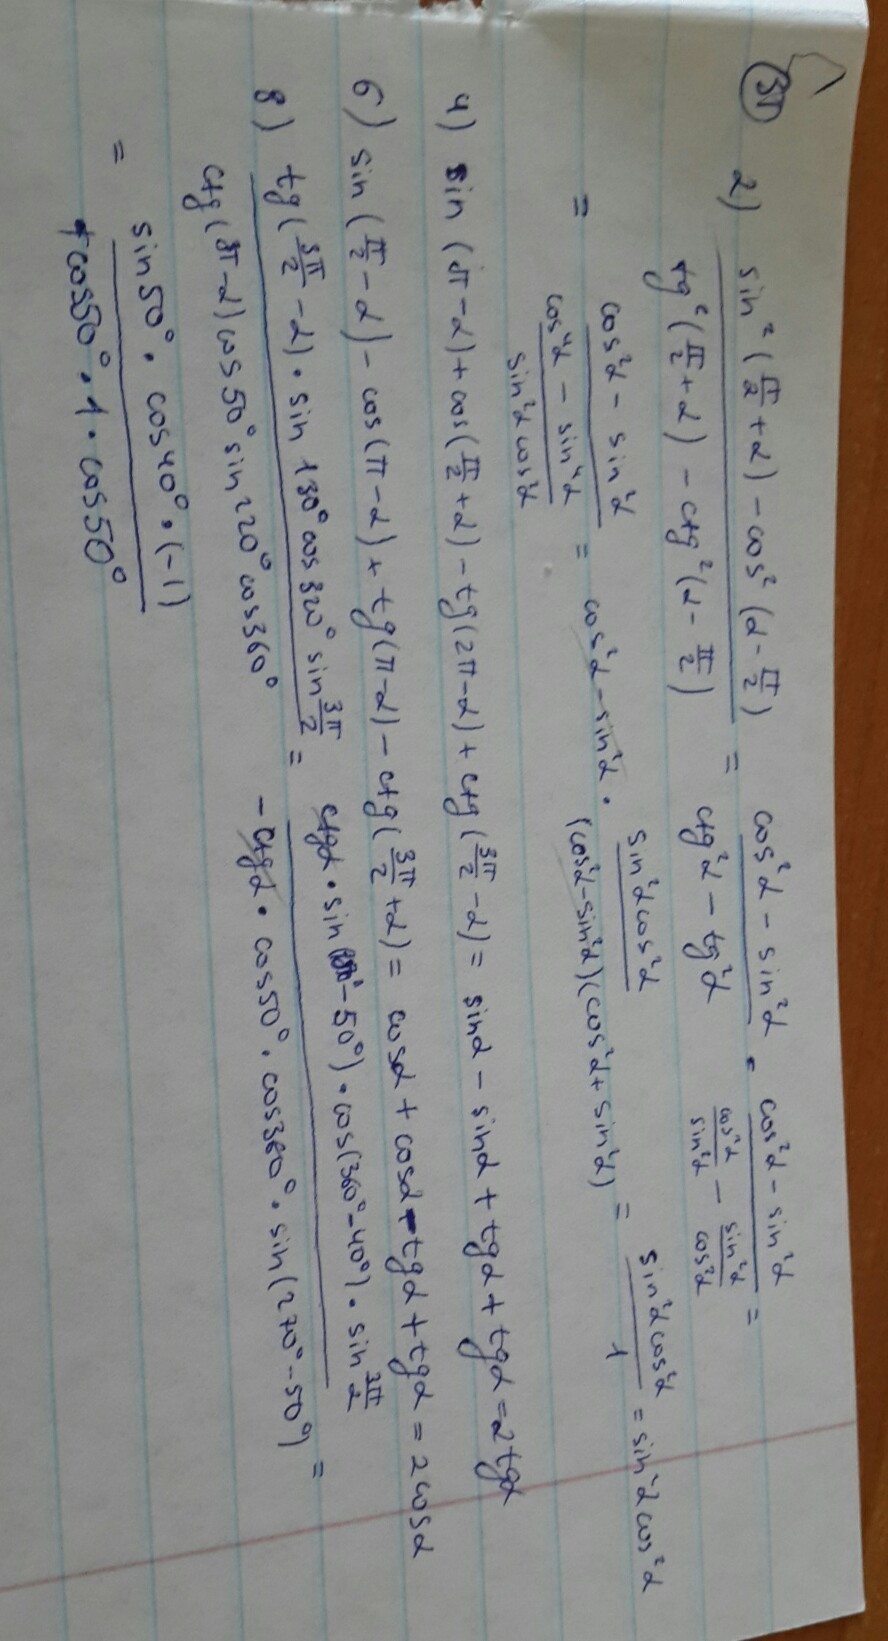 2) sin²(π/2+α) − cos²(α−π/2) / tg²(π/2+α) − ctg²(α−π/2) = cos²α − sin²α / ctg²α − tg²α = cos²α − sin²α / cos²α/sin²α − sin²α/cos²α =
= cos²α − sin²α / cos⁴α − sin⁴α / sin²α cos²α = cos²α − sin²α · sin²α cos²α / (cos²α−sin²α)(cos²α+sin²α) = sin²α cos²α / 1 = sin²α cos²α
4) sin(π−α) + cos(π/2+α) − tg(2π−α) + ctg(3π/2−α) = sinα − sinα + tgα + tgα = 2tgα
6) sin(π/2−α) − cos(π−α) + tg(π−α) − ctg(3π/2+α) = cosα + cosα − tgα + tgα = 2cosα
8) tg(3π/2−α) · sin 130° cos 320° sin 3π/2 / ctg(π−α) cos50° sin220° cos360° = ctgα · sin( −50°) · cos(360°−40°) · sin 3π/2 / −ctgα · cos50° · cos360° · sin(270°−50°) =
= sin50° · cos40° · (−1) / cos50° · 1 · cos50°